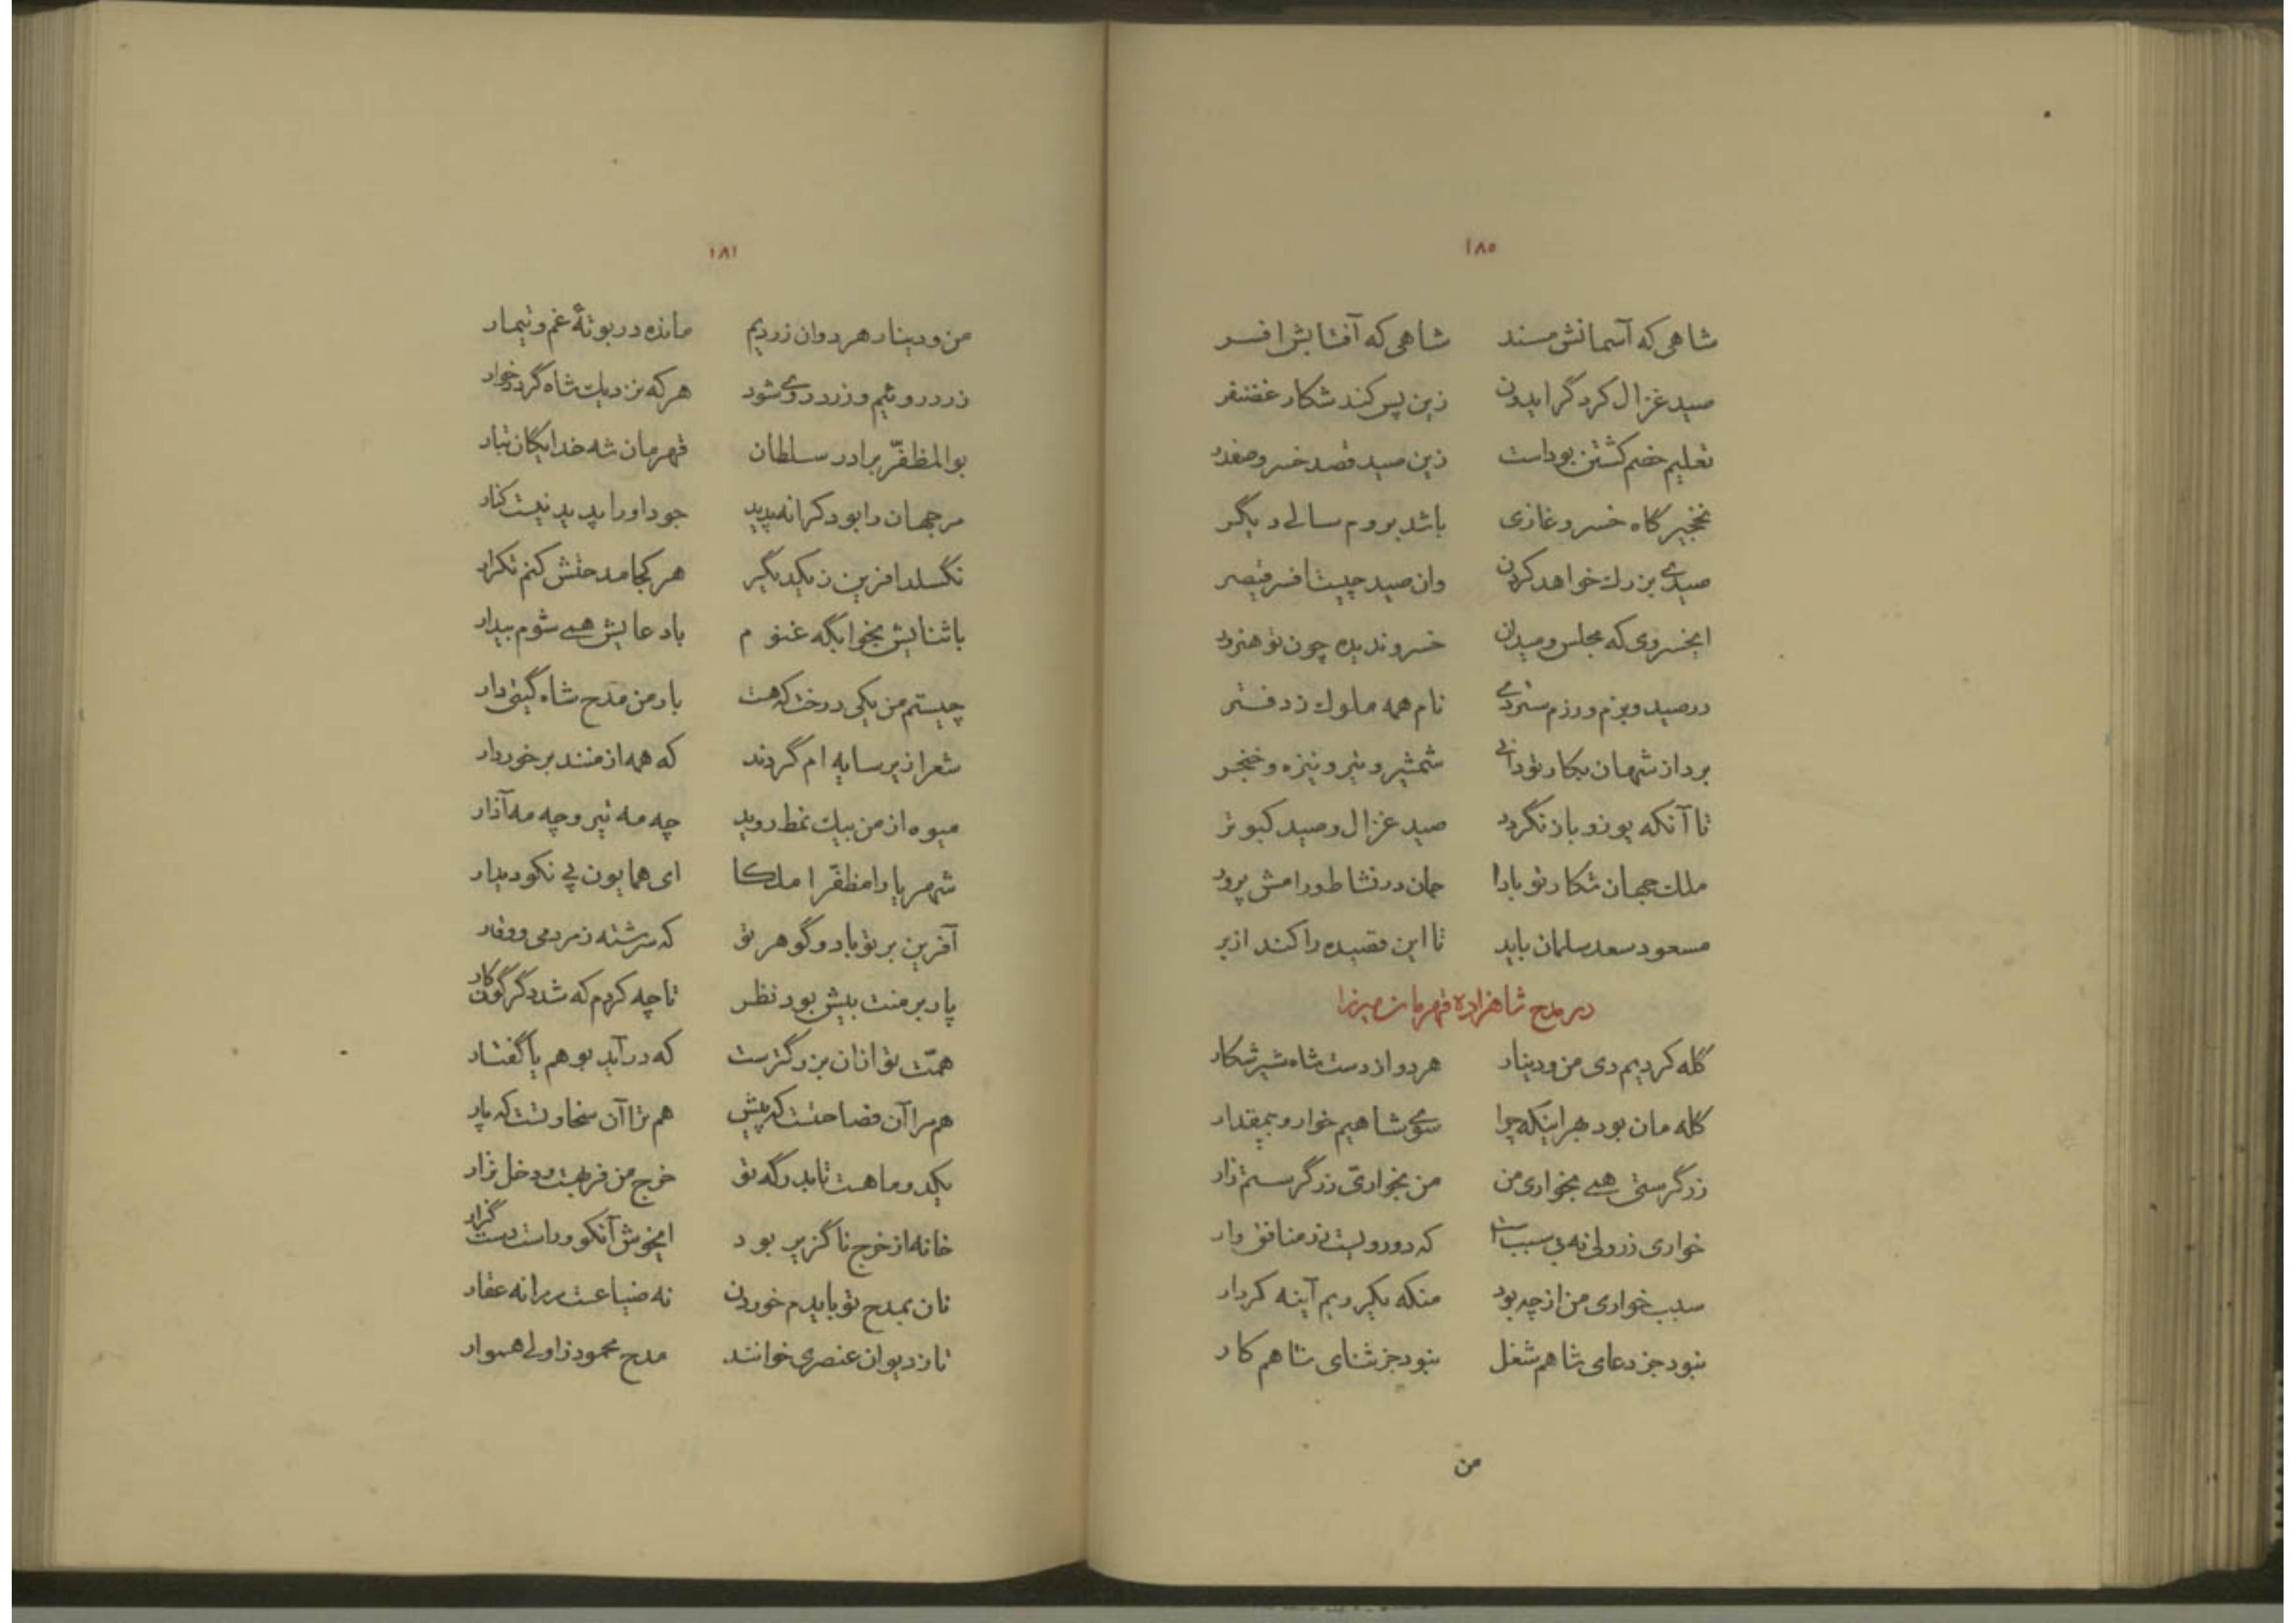 ۱۸۵
شاهی که آسمانش مسند شاهی که آفتابش افسر
صید غزال کرد گر ایدون زین پس کند شکار غضنفر
تعلیم خصم کشتن بوداست زین صید قصد خسرو صفدر
نخجیرگاه خسرو غازی باشد بروم سالی دیگر
صیدی بزرك خواهد کردن وان صید چیست افسر قیصر
ایخسروی که مجلس و میدان خسرو ندیده چون تو هنرور
در صید و بزم و رزم ستردی نام همه ملوك ز دفتر
برداز شهان بکار تو دانی شمشیر و تیر و نیزه و خنجر
تا آنکه یوز و باز نگردد صید غزال و صید کبوتر
ملك جهان شکار تو بادا جان در نشاط و رامش پرور
مسعود سعد سلمان باید تا این قصیده را کند از بر
در مدح شاهزاده قهرمان میرزا
گله کردیم دی من و دینار هر دو از دست شاه شیر شکار
گله مان بود بهر اینکه چرا سوی شاهیم خوار و بیمقدار
زر گرستی همی بخواری من من بخواری زر گرستم زار
خواری زر ولی نه بی سبب است که دورویست زر منافق وار
سبب خواری من از چه بود منکه یکرویم آینه کردار
نبود جز دعای شاهم شغل نبود جز ثنای شاهم کار
من
۱۸۱
من و دینار هر دوان زردیم مانده در بوتهٔ غم و تیمار
زرد روئیم و زرد روی شود هر که نزدیك شاه گردد خوار
بوالمظفّر برادر سلطان قهرمان شه خدایگان تبار
مر جهان را بود کرانه پدید جود او را پدید نیست کنار
نگسلد افزین ز یکدیگر هر کجا مدحتش کنم تکرار
با ثنایش بخوابگه غنوم با دعایش همی شوم بیدار
چیستم من یکی درخت که هست بار من مدح شاه گیتی دار
شعرا زیر سایه ام گردند که همه از منند برخوردار
میوه از من بیك نمط روید چه مه تیر و چه مه آذار
شهریارا مظفّرا ملکا ای همایون پی نکو دیدار
آفرین بر تو باد و گوهر تو که سرشته ز مردمی و وقار
پار بر منت بیش بود نظر تا چه کردم که شد دگرگون کار
همّت تو ازان بزرگترست که در آید بوهم یا گفتار
هم مرا آن فصاحتست که پیش هم ترا آن سخاوتست که پار
یکدو ماهست تا بدرگه تو خرج من فربهست و دخل نزار
خانه از خرج ناگزیر بود ایخوش آنکو وراست دست گزار
نان بمدح تو بایدم خوردن نه ضیاعست مر مرا نه عقار
تا ز دیوان عنصری خوانند مدح محمود زاولی هموار